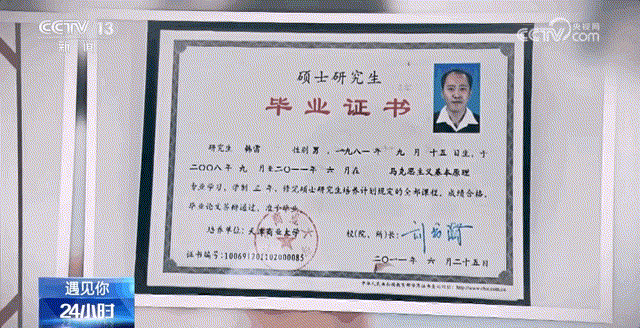 CCTV 13
新闻
央视网
CCTV.com
硕士研究生
毕业证书
研究生 韩雷 性别 男 ，一九八一年 九月 十五日生，于
二〇〇八年 九月 至二〇一一年 六月在 马克思主义基本原理
专业学习，学制 三 年，修完硕士研究生培养计划规定的全部课程，成绩合格，
毕业论文答辩通过，准予毕业。
培养单位：天津商业大学
校(院、所)长：
证书编号：100691201102000085
二〇一一年 六月二十五日
遇见你
24小时